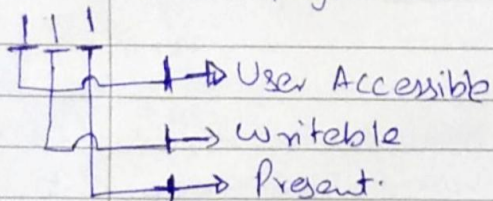 1 1 1
User Accessible
Writeble
Present.